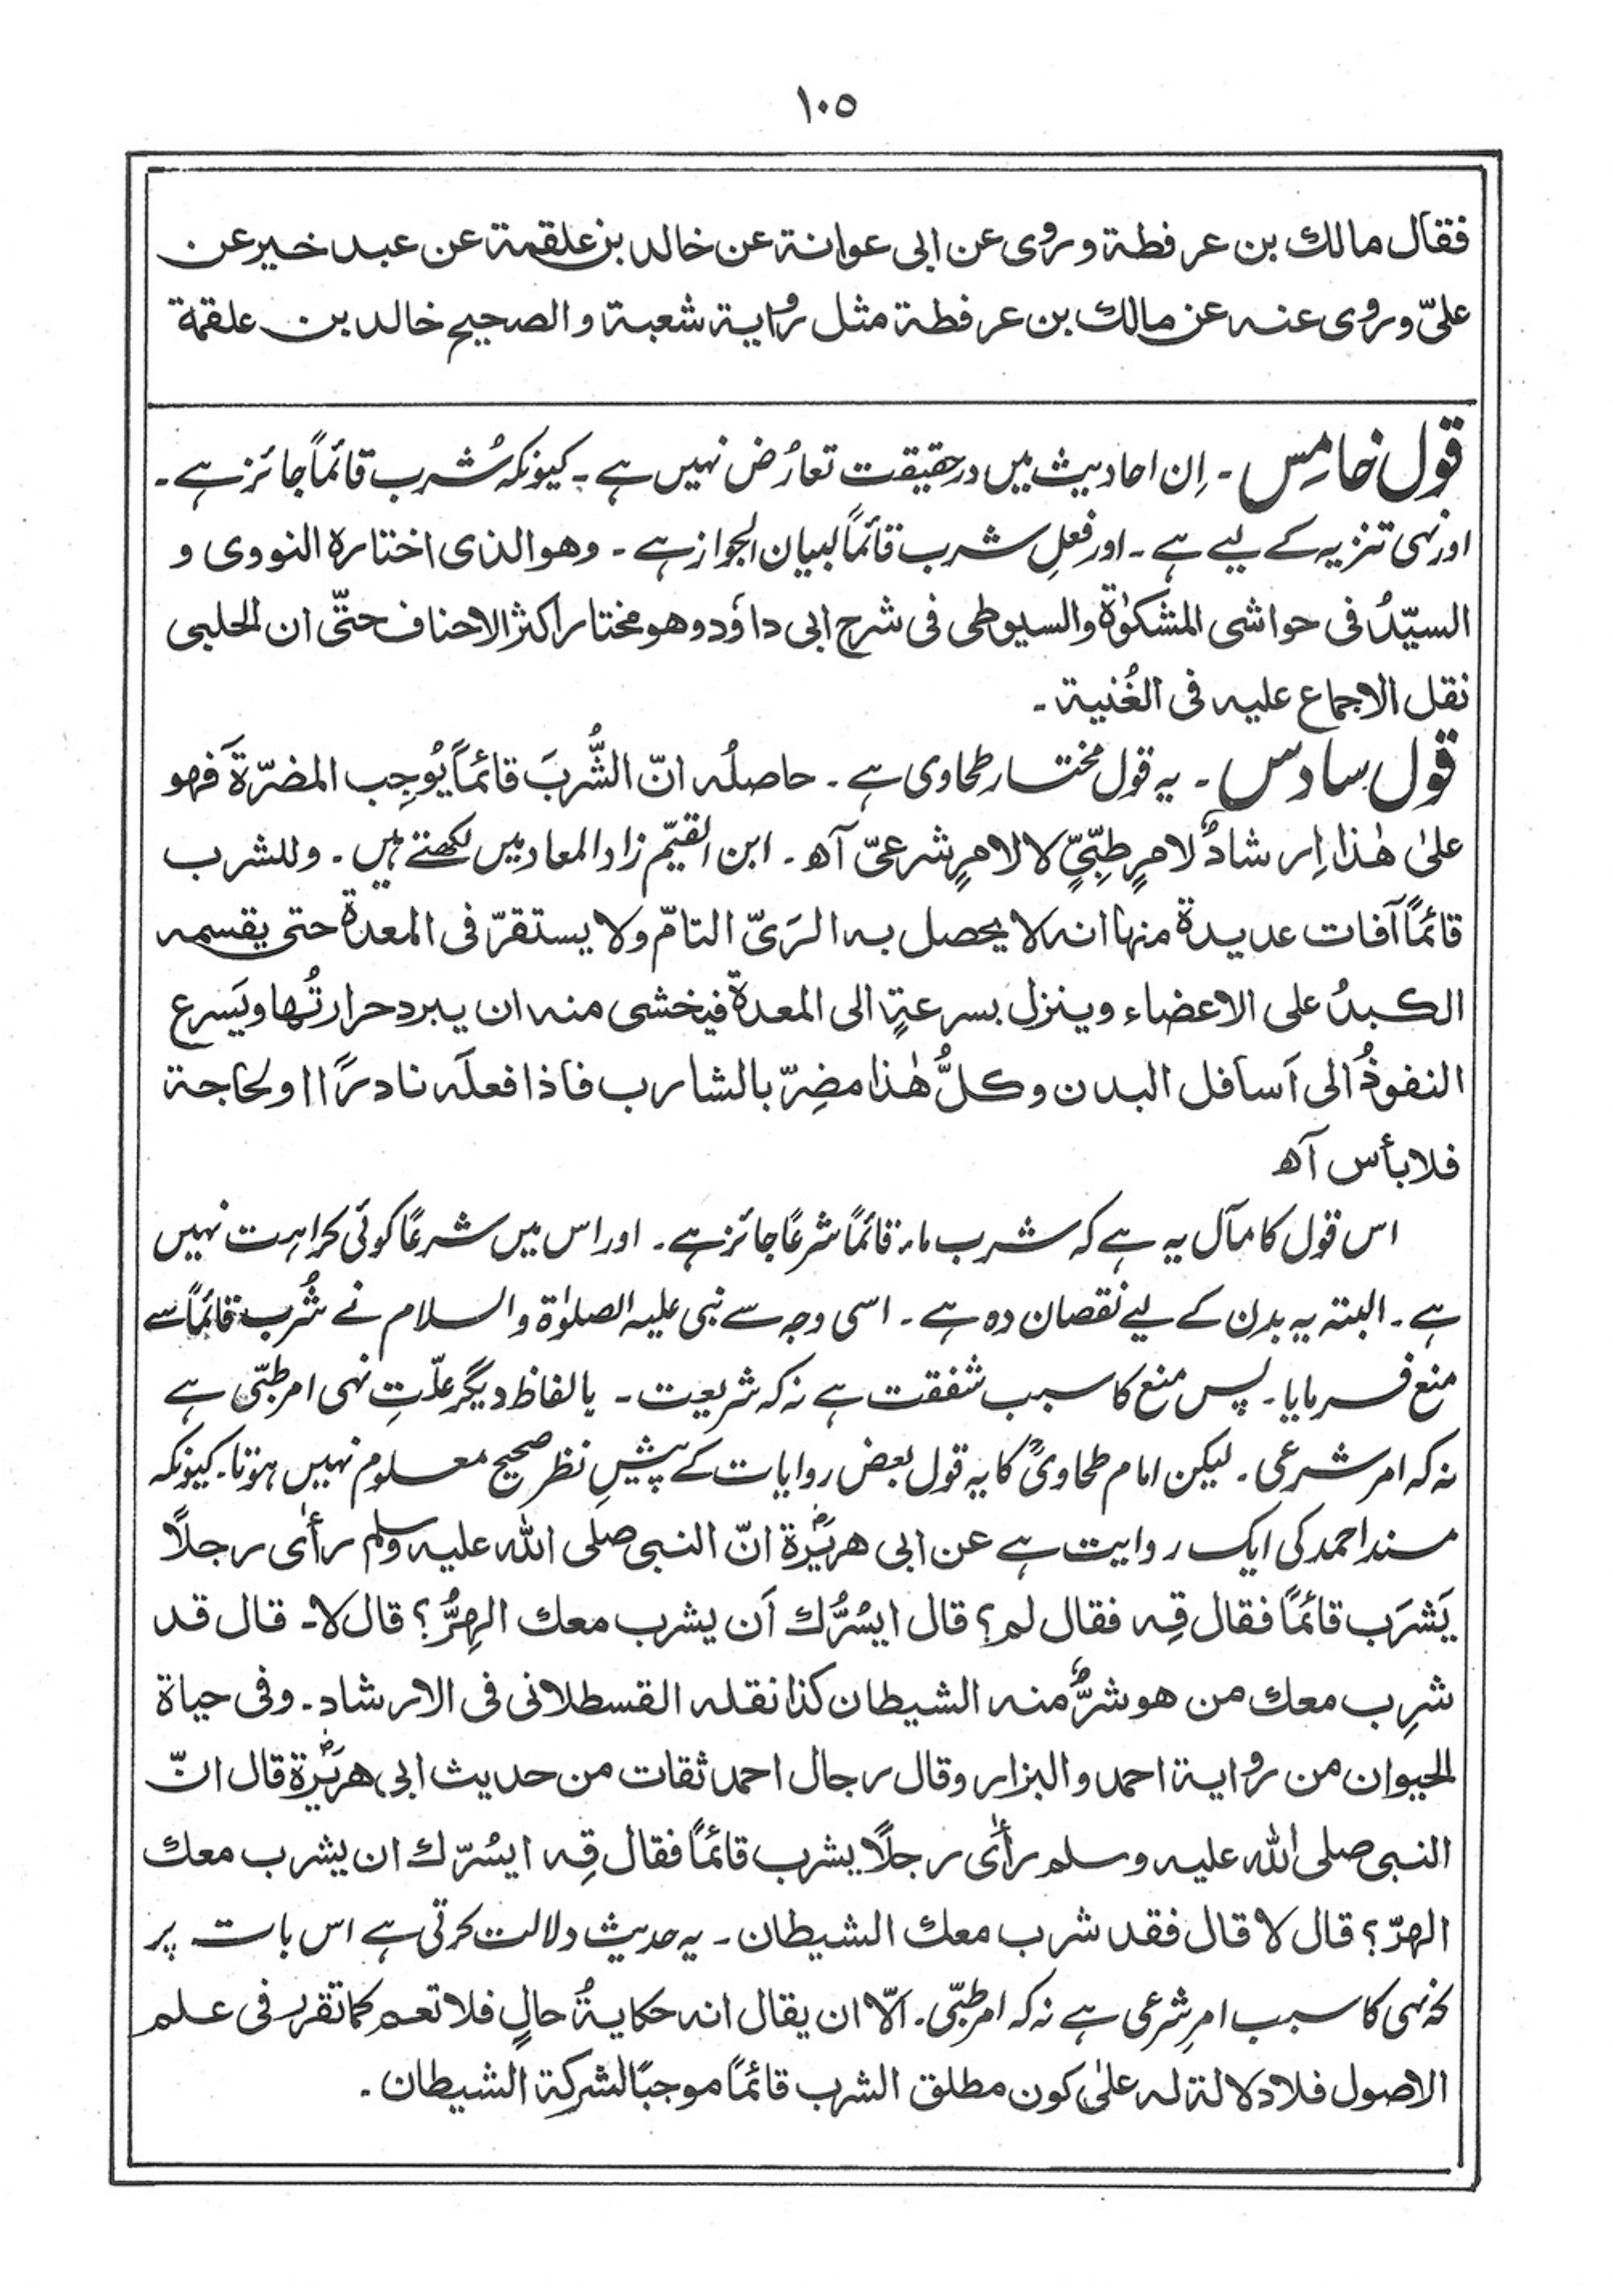 ١٠٥
فقال مالك بن عرفطة وروى عن ابى عوانة عن خالد بن علقمة عن عبد خير عن
علىّ وروى عنه عن مالك بن عرفطة مثل رواية شعبة والصحيح خالد بن علقمة
قول خامس ۔ اِن احادیث میں درحقیقت تعارُض نہیں ہے ۔ کیونکہ شُرب قائماً جائز ہے ۔
اور نہی تنزیہ کے لیے ہے ۔ اور فعلِ شرب قائماً لبیان الجواز ہے ۔ وهو الذى اختاره النووى و
السيّدُ فى حواشى المشكوٰة والسيوطى فى شرح ابى داؤد وهو مختار اكثر الاحناف حتّى ان الحلبى
نقل الاجماع عليه فى الغُنية ۔
قول سادس ۔ یہ قول مختار طحاوی ہے ۔ حاصلُه انّ الشُّربَ قائماً يُوجِب المضرّةَ فهو
علىٰ هٰذا اِرشادٌ لامرٍ طِبّىٍّ لا لامرٍ شرعىّ آھ ۔ ابن القیّم زاد المعاد میں لکھتے ہیں ۔ وللشرب
قائماً آفات عديدة منها انه لا يحصل به الرَىّ التامّ ولا يستقرّ فى المعدة حتى يقسمه
الكبدُ على الاعضاء وينزل بسرعةٍ الى المعدة فيخشى منه ان يبرد حرارتُها ويَسرع
النفوذُ الى آسافل البدن وكلُّ هٰذا مضِرّ بالشارب فاذا فعلَه نادرًا او لحاجة
فلا بأس آھ
اس قول کا مآل یہ ہے کہ شرب ماء قائماً شرعًا جائز ہے ۔ اور اس میں شرعًا کوئی کراہت نہیں
ہے ۔ البتہ یہ بدن کے لیے نقصان دہ ہے ۔ اسی وجہ سے نبی علیہ الصلوٰة والسلام نے شُرب قائماً سے
منع فرمایا ۔ پس منع کا سبب شفقت ہے نہ کہ شریعت ۔ بالفاظ دیگر علّتِ نہی امر طبّی ہے
نہ کہ امر شرعی ۔ لیکن امام طحاویؒ کا یہ قول بعض روایات کے پیشِ نظر صحیح معلوم نہیں ہوتا ۔ کیونکہ
مسند احمد کی ایک روایت ہے عن ابى هريرةؓ انّ النبى صلى الله عليه وسلم رأى رجلًا
يَشرَب قائماً فقال قِه فقال لم؟ قال ايسُرُّك اَن يشرب معك الهِرُّ؟ قال لا ۔ قال قد
شرِب معك من هو شرٌّ منه الشيطان كذا نقله القسطلانى فى الارشاد ۔ وفى حياة
الحيوان من رواية احمد والبزار وقال رجال احمد ثقات من حديث ابى هريرةؓ قال انّ
النبى صلى الله عليه وسلم رأى رجلًا يشرب قائماً فقال قِه ايسُرّك ان يشرب معك
الهرّ؟ قال لا قال فقد شرب معك الشيطان ۔ یہ حدیث دلالت کرتی ہے اس بات پر
کہ نہی کا سبب امرِ شرعی ہے نہ کہ امر طبّی ۔ الّا ان يقال انه حكايةُ حالٍ فلا تعم كما تقرر فى علم
الاصول فلا دلالة له علىٰ كون مطلق الشرب قائماً موجبًا لشركة الشيطان ۔